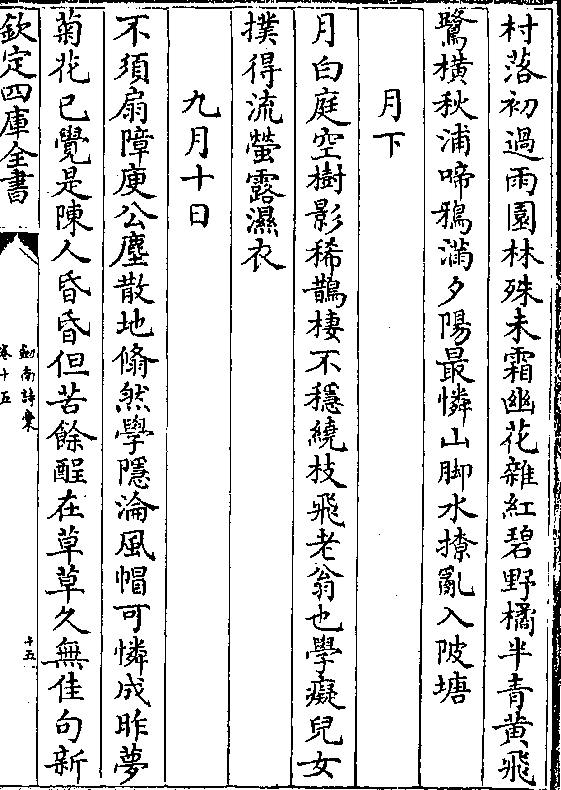 村落初過雨園林殊未霜幽花雜紅碧野橘半青黃飛
鷺橫秋浦啼鴉滿夕陽最憐山脚水撩亂入陂塘
月下
月白庭空樹影稀鵲棲不穩繞枝飛老翁也學癡兒女
撲得流螢露濕衣
九月十日
不須扇障庾公塵散地翛然學隱淪風帽可憐成昨夢
菊花已覺是陳人昏昏但苦餘酲在草草久無佳句新
欽定四庫全書
劍南詩槀
卷十五
十五